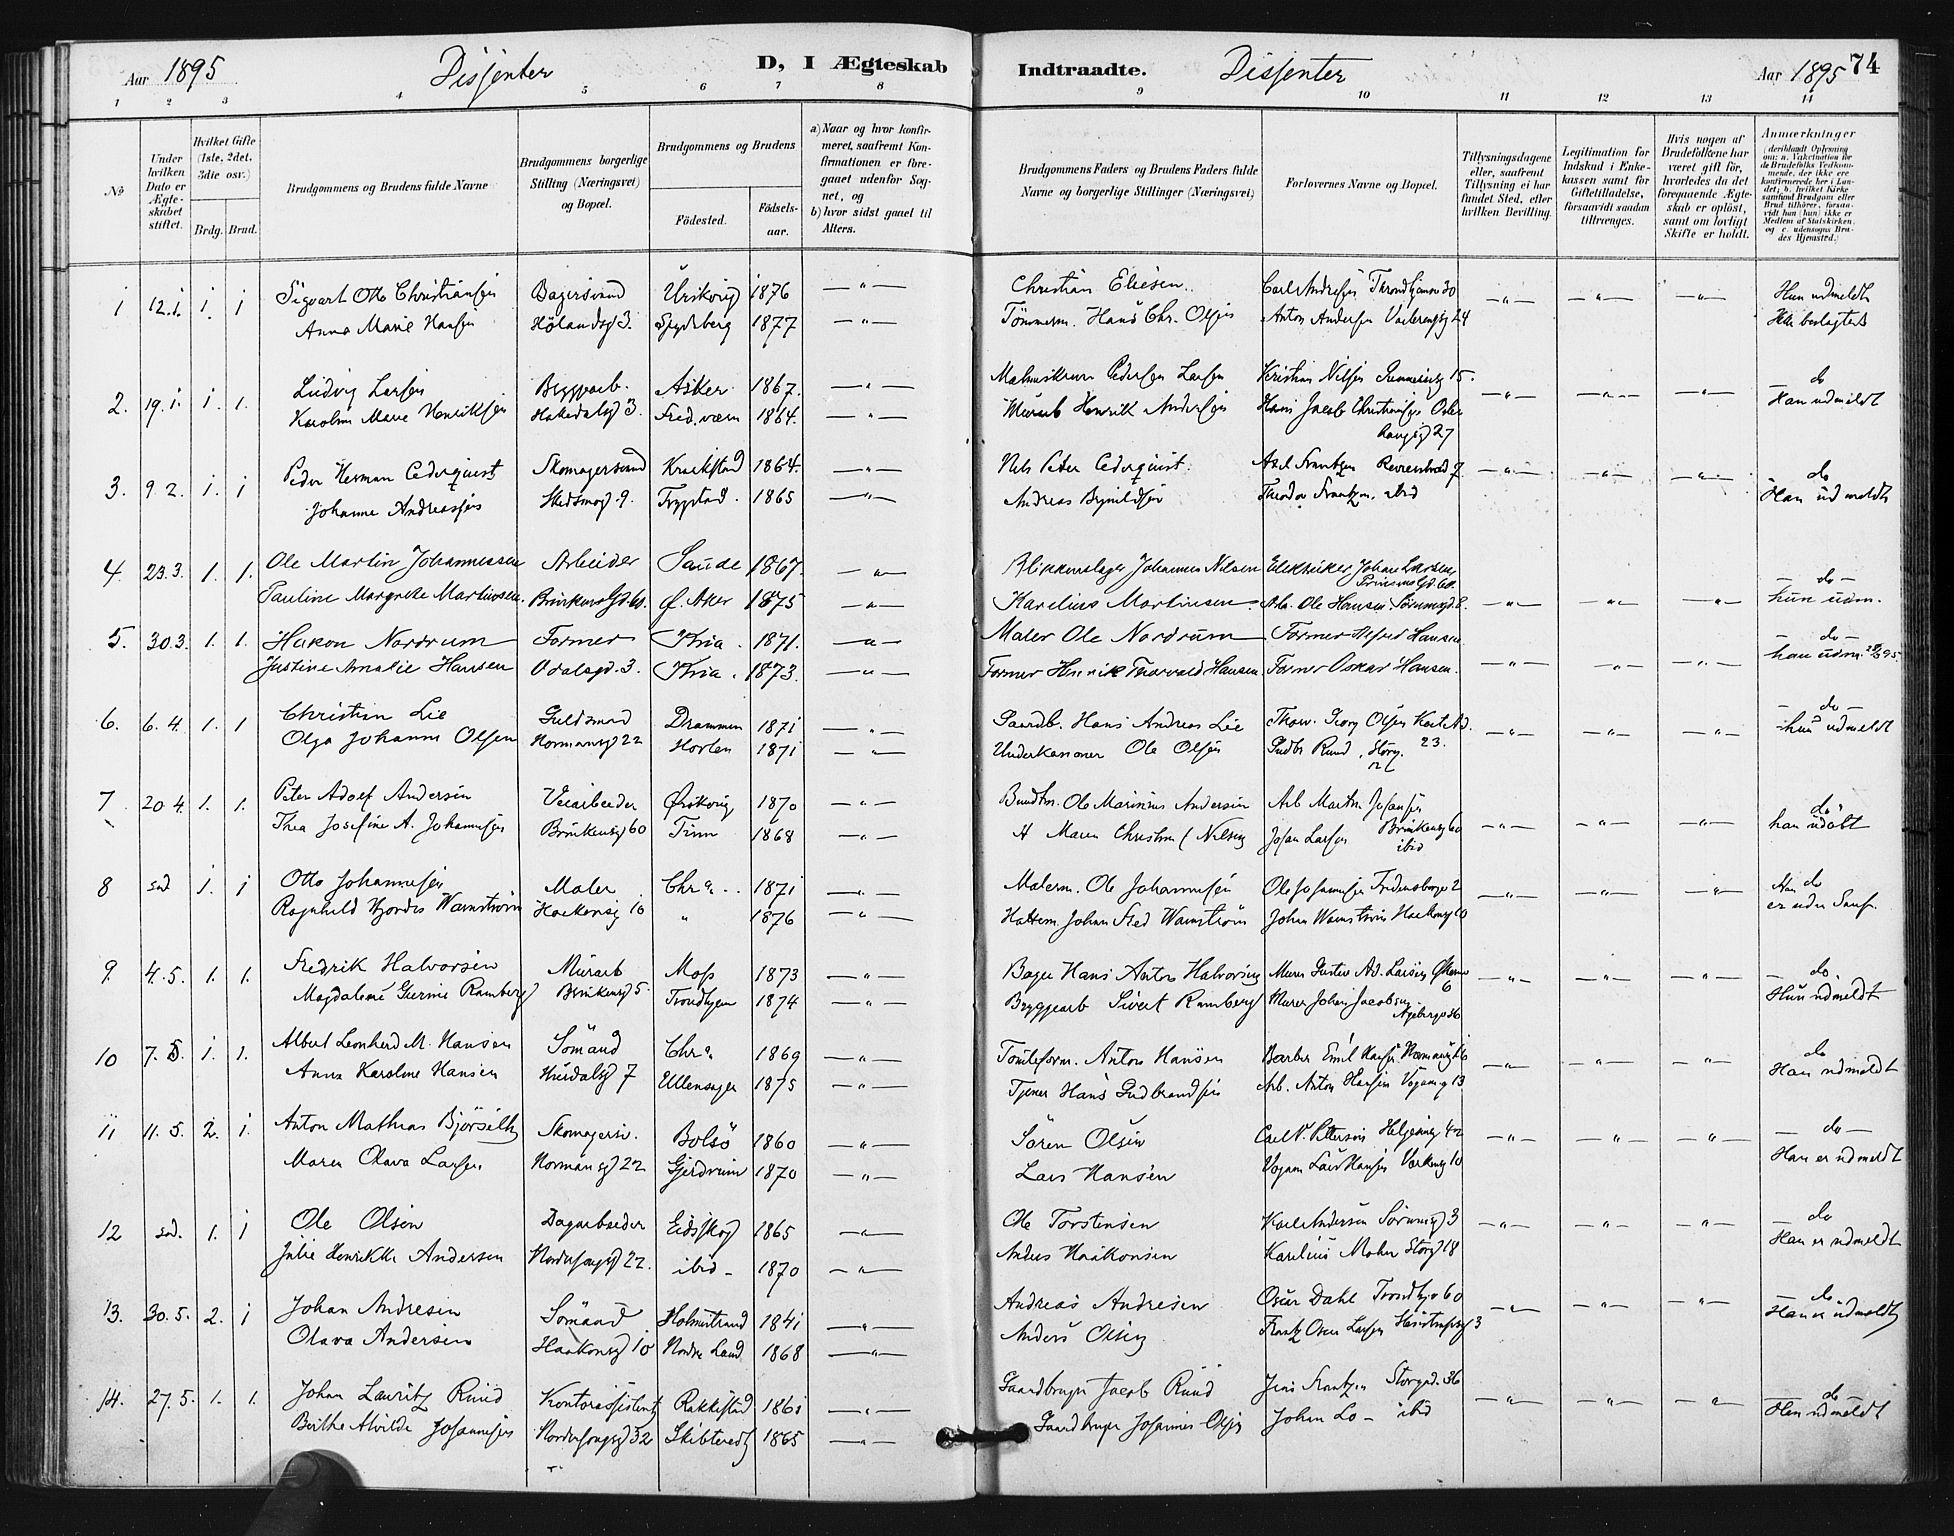 Aar 1895 Dissenter D, I Ægteskab
Indtraadte. Dissenter Aar 1895 74
1 2 3 4 5 6 7 8
9 10 11 12 13 14
No
Under hvilken Dato er Ægteskabet stiftet.
Hvilket Gifte (1ste, 2det, 3die osv.)
Brdg. Brud.
Brudgommens og Brudens fulde Navne
Brudgommens borgerlige Stilling (Næringsvei) og Bopæl.
Brudgommens og Brudens
Fødested. Fødselsaar.
a) Naar og hvor konfirmeret, saafremt Konfirmationen er foregaaet udenfor Sognet, og
b) hvor sidst gaaet til Alters.
Brudgommens Faders og Brudens Faders fulde Navne og borgerlige Stillinger (Næringsvei)
Forlovernes Navne og Bopæl.
Tillysningsdagene eller, saafremt Tillysning ei har fundet Sted, efter hvilken Bevilling.
Legitimation for Indskud i Enkekassen samt for Giftetilladelse, forsaavidt saadan tiltrænges.
Hvis nogen af Brudefolkene har været gift før, hvorledes da det foregaaende Ægteskab er opløst, samt om lovligt Skifte er holdt.
Anmærkninger (deriblandt Oplysning om: a. Vakcination for de Brudefolks Vedkommende, der ikke ere konfirmerede her i Landet; b. hvilket Kirkesamfund Brudgom eller Brud tilhører, forsaavidt han (hun) ikke er Medlem af Statskirken, og c. udensogns Brudes Hjemsted.)
1 12.1. 1. 1 Sigvart Otto Christiansen Bagersvend Urskoug 1876 — " — Christian Eliesen Carl Andresen Throndhjemsv 30 — " — — " — — " — Hun udmeldt
Anna Marie Hansen Hølandsg 3. Spydeberg 1877 — " — Tømmerm. Hans Chr. Olsen Anton Andersen Vaalerengsg 24 Ikke beslægtede
2. 19.1. 1. 1. Ludvig Larsen Bryggearb. Asker 1867. — " — Pedersen Larsen Kristian Nilsen 15. — " — — " — — " — do
Karoline Marie Henriksen Hakedalsg 3. Fred.værn 1864. — " — Murarb Henrik Andersen Hans Jacob Christiansen Oslo Han udmeldt
27
3. 9.2. 1. 1 Peder Herman Cederquist Skomagersvend Kraakstad 1864. — " — Nils Peter Cederquist. Axel Frantzen 7 — " — — " — — " — do
Johanne Andreassen Skedsmog 9. Trygstad. 1865 — " — Andreas Brynildsen Theodor Frantzen. ibid Han udmeldt
4. 23.3. 1. 1. Ole Martin Johannessen Arbeider Saude 1867. — " — Blikkenslager Johannes Nilsen Elektriker Johan Larsen — do —
Prinsens Gd 60.
Pauline Margrete Martinsen. BrinkensGd 60. Ø. Aker 1875 — " — Karelius Martinsen. Arb. Ole Hansen Sørumsgd. 8. — " — — " — — " — hun udm.
5. 30.3. 1. 1. Hakon Nordrum Former Kria. 1871. — " — Maler Ole Nordrum Former Alfred Hansen — do —
Justine Amalie Hansen Odalsgd. 3. Kria. 1873. — " — Former Henrik Thorvald Hansen. Former Oskar Hansen. — " — — " — — " — han udm. 95.
6. 6.4. 1. 1 Christian Lie Guldsmed Drammen 1871 — " — Gaardb. Hans Andreas Lie Thorv. Georg Olsen — do —
Olga Johanne Olsen Normannsg 22 Horten 1871 — " — Underkanoner Ole Olsen Gudbr Ruud, Storg. 23. — " — — " — — " — hun udmeldt
7 20.4. 1. 1. Peter Adolf Andersen Veiarbeider Ørskoug 1870 — " — Bundtm. Ole Marinius Andersen Arb Martin Johansen do
Thea Josefine A. Johannesen Brinkensg 60 Tinn 1868 — " — Maren Christine Nilsen Johan Larsen Brinkensg 60 — " — — " — — " — han udøbt
ibid
8 sad 1. 1 Otto Johannesen Maler Chra. 1871 — " — Malerm. Ole Johannesen Ole Johannesen Fredensborgv 2 — " — — " — — " — do
Ragnhild Hjordis Warnstrøm Haakonsg 10 " 1876 — " — Hattem. Johan Fred Warnstrøm Johan Warnstrøm Haakonsg 10 er uden Samf.
9. 4.5. 1. 1. Fredrik Halvorsen Murarb Moss 1873 — " — Bager Hans Anton Halvorsen Murer Gustav Ad. Larsen — " — — " — — " — do
6
Magdalene Gurine Ramberg Brinkensg 5. Trondhjem 1874 — " — Bryggearb Sivert Ramberg Murer Johan Jacobsen Hun udmeldt
Agebergv 36
10 7.5. 1. 1. Albert Leonherd M. Hansen Sömand Chra 1869 — " — Tomteform. Anton Hansen Barber Emil Hansen Normansg — " — — " — — " — do
Anna Karoline Hansen Hurdalsg 7 Ullensager 1875 — " — Tjener Hans Gudbrandsen Arb. Anton Hansen Vognmg 13 Han udmeldt
11 11.5. 2. 1. Anton Mathias Bjørseth Skomagersv. Bolsö 1860 — " — Sören Olsen Carl V. Petterson Helgesensg 42 — " — — " — — " — — do —
Maren Olava Larsen Normansg 22 Gjerdrum 1870 — " — Lars Hansen Vognm Lars Hansen 10 Han er udmeldt
12 sad. 1. 1 Ole Olsen Dagarbeider Eidsskog 1865 — " — Ole Torstensen Karl Andersen Sörumsg 3 — " — — " — — " — do
Julie Henrikke Andersen Nordre 22. ibid - 1870 — " — Anders Haakonsen Karelius Mohn Storg 18 Han er udmeldt
13. 30.5. 2. 1 Johan Andresen Sömand Holmestrand 1841 — " — Andreas Andresen Oscar Dahl Trondhjv 60 — " — — " — — " — do
Olava Andersen Haakonsg 10 Nordre Land. 1868 — " — Anders Olsen Frantz Oscar Larsen 3 Han er udmeldt
14. 27.5. 1. 1. Johan Lauritz Ruud Kontorassistent Rakkestad 1861 — " — Gaardbruger Jacob Ruud Jens Frantzen Storgad. 36 — " — — " — — " — do
Berthe Alvilde Johannesen 32 Skibtvedt 1865 — " — Gaardbruger Johannes Olsen Johan Lo — ibid Han udmeldt